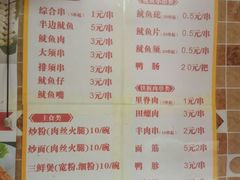 综合串 1元/串
半边鱿鱼 5元/串
鱿鱼肉 3元/串
大须串 3元/串
排须串 3元/串
鱿鱼仔 3元/串
鱿鱼嘴 3元/串
主食类
炒粉(肉丝火腿)10/碗
炒面(肉丝火腿)10/碗
三鲜煲(宽粉.细粉)10/碗
鱿鱼 0.5元/串
鱿鱼 0.5元/串
鱿鱼须 0.5元/串
鸭肠 20元/把
铁板肉串类
里脊肉 1元/串
田螺肉 3元/串
羊肉串 2元/串
面筋 5元2串
鸭 3元/串